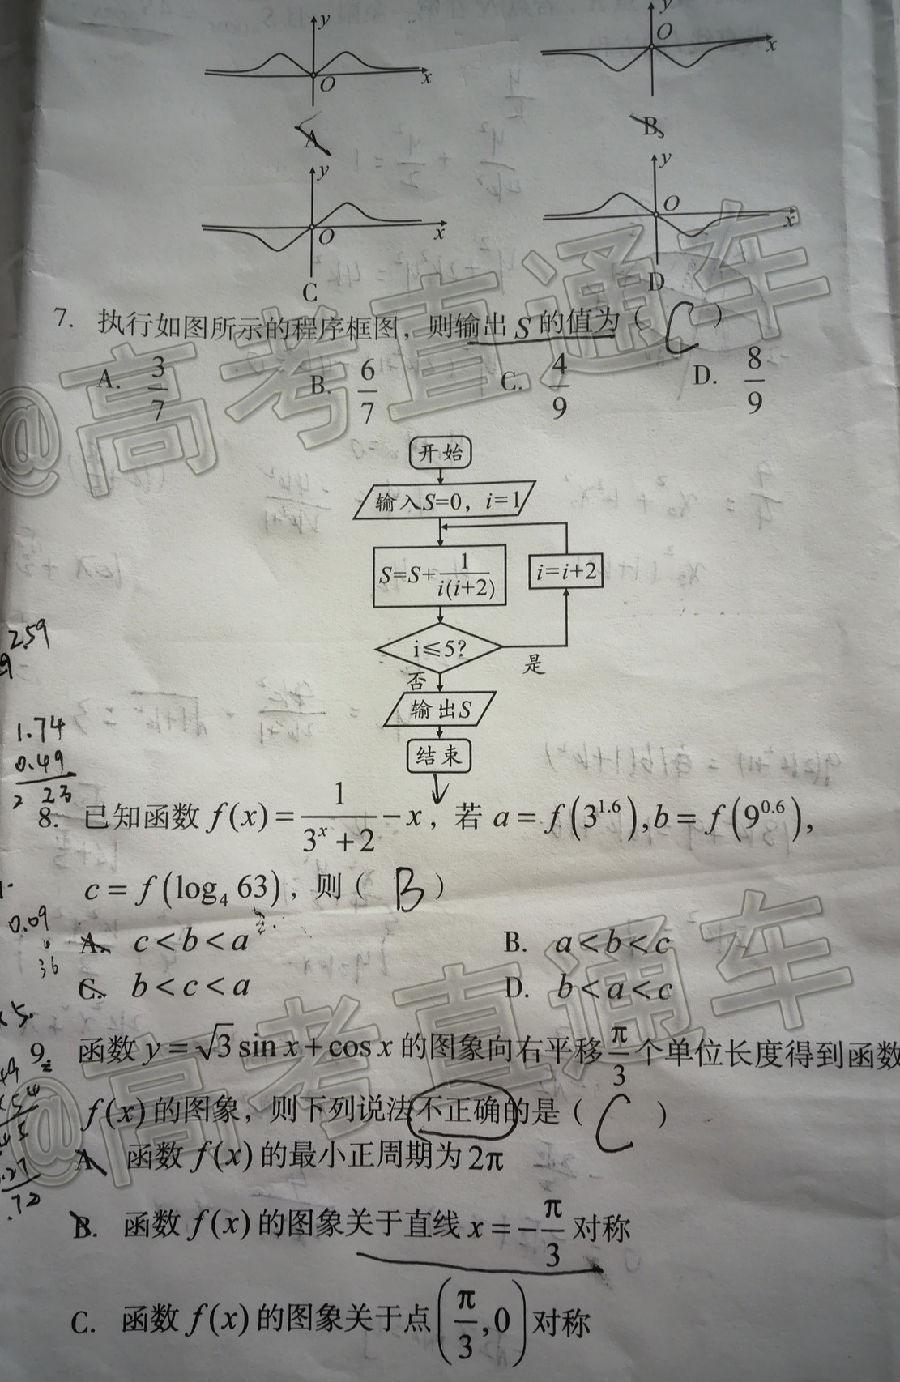 y y
O O
x x
A B
y y
O O
x x
C D
7. 执行如图所示的程序框图，则输出 S 的值为（ C ）
A. 3/7 B. 6/7 C. 4/9 D. 8/9
开始
输入S=0，i=1
S=S+1/(i(i+2)) i=i+2
i≤5?
是
否
输出S
结束
2.59
1.74
0.49
2 23
8. 已知函数 f(x)=1/(3^x+2)-x，若 a=f(3^1.6),b=f(9^0.6),
c=f(log₄63)，则（ B ）
0.09
36
A. c<b<a B. a<b<c
C. b<c<a D. b<a<c
9. 函数 y=√3 sin x+cos x 的图象向右平移 π/3 个单位长度得到函数
f(x)的图象，则下列说法不正确的是（ C ）
A. 函数 f(x)的最小正周期为2π
B. 函数 f(x)的图象关于直线 x=-π/3 对称
C. 函数 f(x)的图象关于点(π/3,0)对称
@高考直通车
@高考直通车